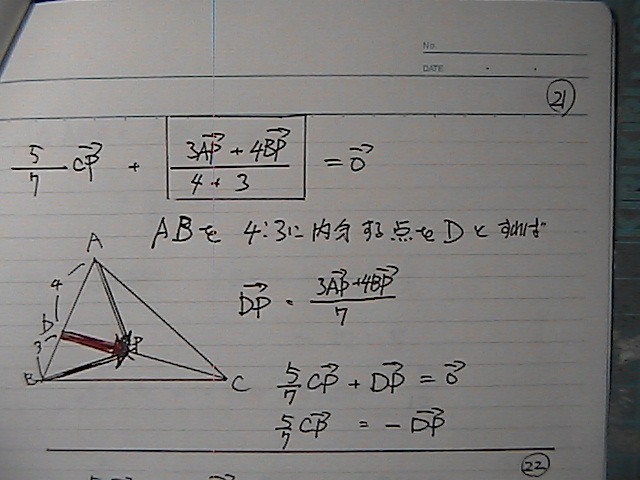 No.
DATE
21
5/7 CP→ + (3AP→ + 4BP→)/(4 + 3) = 0→
ABを 4:3に内分する点をDとすれば
A
4
D
3
P
B
C
DP→ = (3AP→+4BP→)/7
5/7 CP→ + DP→ = 0→
5/7 CP→ = - DP→
22